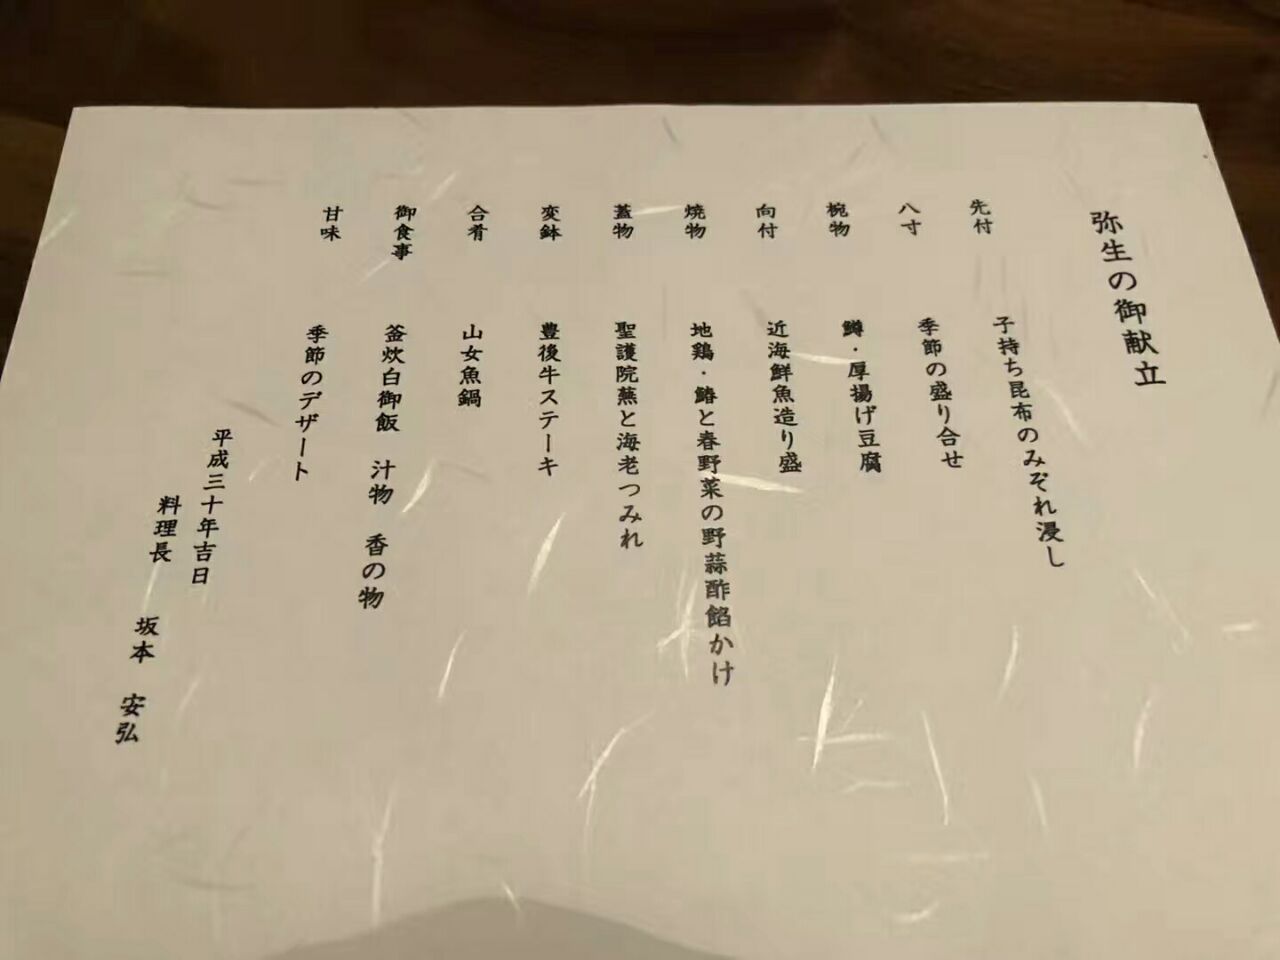 弥生の御献立
先付 子持ち昆布のみぞれ浸し
八寸 季節の盛り合せ
椀物 鱒・厚揚げ豆腐
向付 近海鮮魚造り盛
焼物 地鶏・鰆と春野菜の野蒜酢餡かけ
蓋物 聖護院蕪と海老つみれ
変鉢 豊後牛ステーキ
合肴 山女魚鍋
御食事 釜炊白御飯 汁物 香の物
甘味 季節のデザート
平成三十年吉日
料理長 坂本 安弘